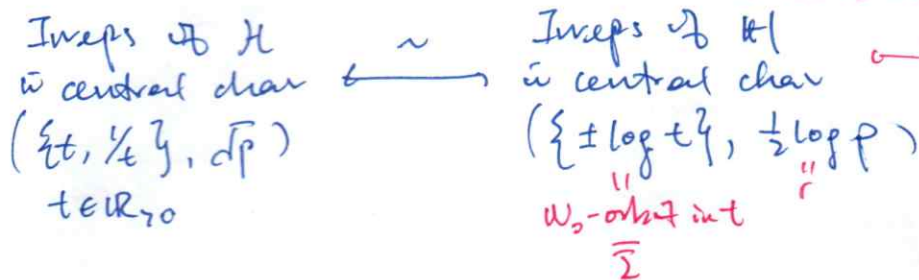 Irreps of H
w central char
({t, 1/t}, √p)
t ∈ ℝ>0
∼
Irreps of ℍ
w central char
({± log t}, ½ log p)
"
"
r
W₀-orbit in t
Σ